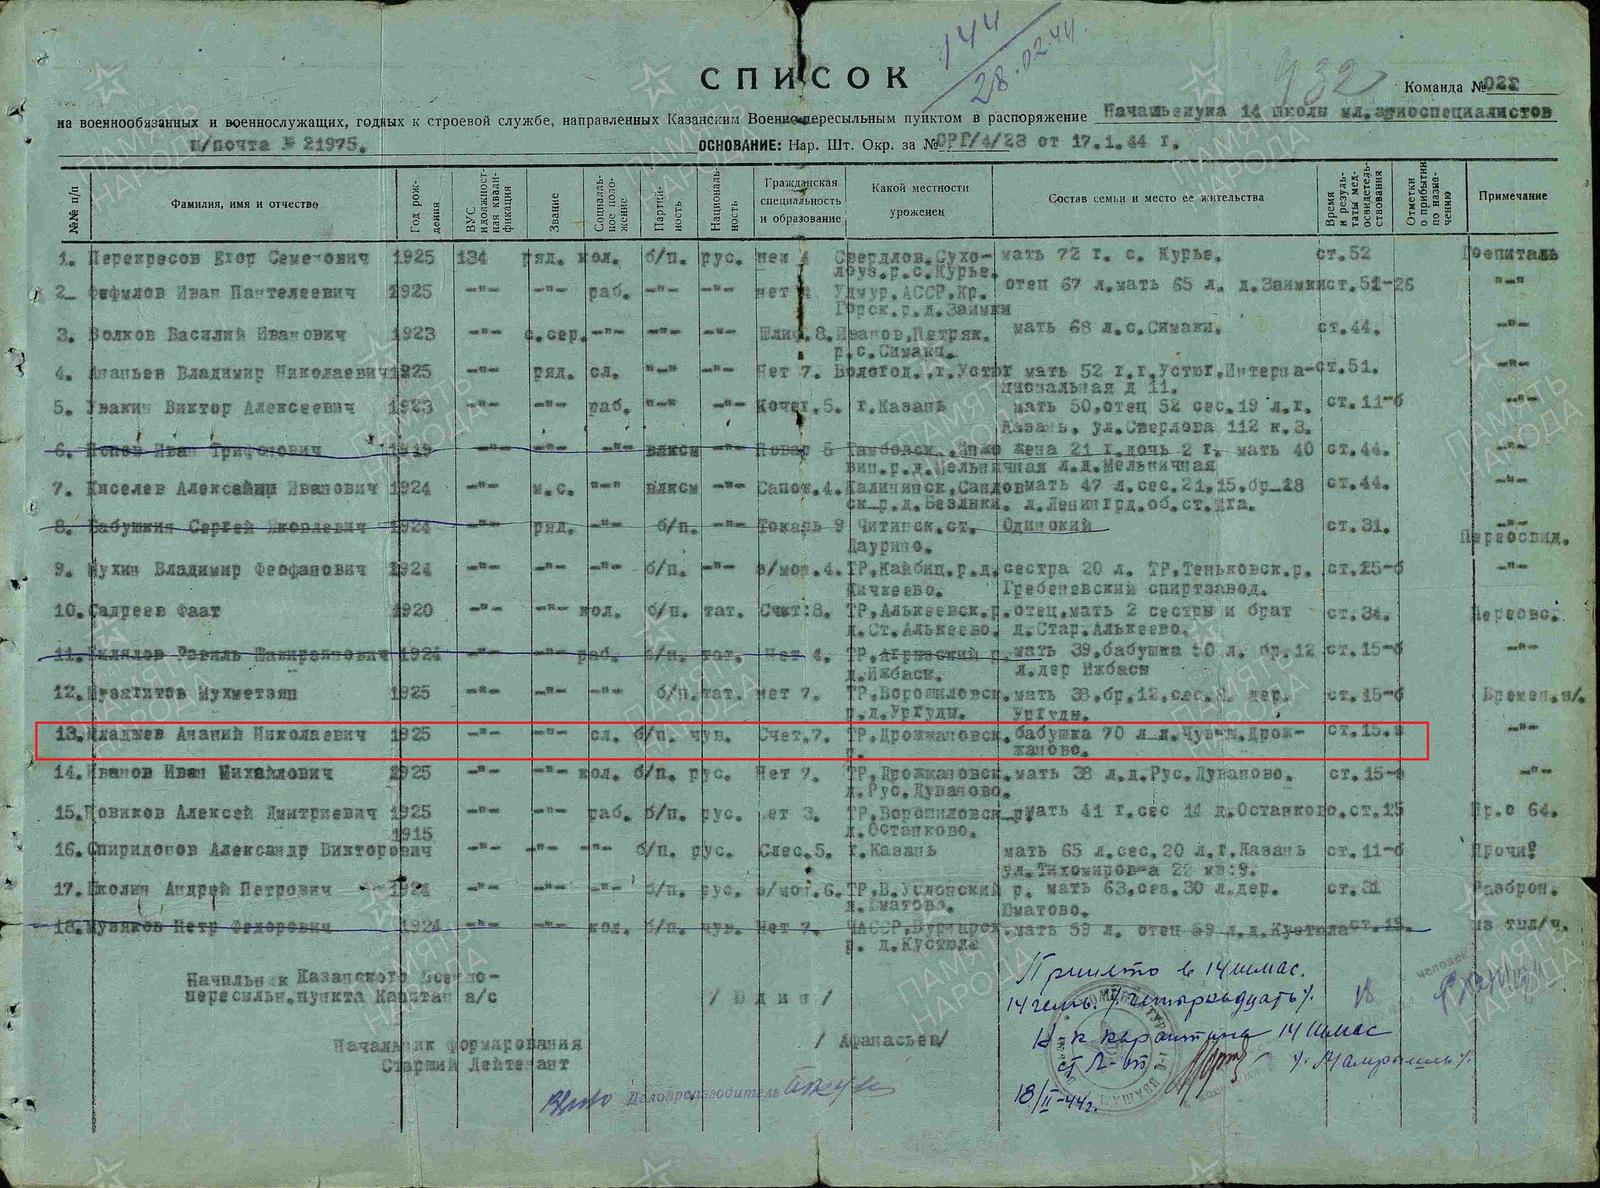 144
28.02.44.
932
СПИСОК
Команда № 022
на военнообязанных и военнослужащих, годных к строевой службе, направленных Казанским Военно-пересыльным пунктом в распоряжение Начальника 14 школы мл.авиоспециалистов
п/почта № 21975.
ОСНОВАНИЕ: Нар. Шт. Окр. за № ОРГ/4/23 от 17.1.44 г.
№№ п/п | Фамилия, имя и отчество | Год рождения | ВУС и должностная квалификация | Звание | Социальное положение | Партийность | Национальность | Гражданская специальность и образование | Какой местности уроженец | Состав семьи и место ее жительства | Время и результаты медосвидетельствования | Отметки о прибытии по назначению | Примечание
1. Перекресов Егор Семенович 1925 134 ряд. кол. б/п. рус. нет 4 Свердлов.Сухо- мать 72 г. с. Курье. ст.52 Госпиталь
лоуз.р.с.Курье.
2. Фефилов Иван Пантелеевич 1925 -"- -"- раб. -"- -"- нет 4 Удмур.АССР.Кр. отец 67 л.мать 65 л. д.Заимки ст.51-26 -"-
Горск.р.д.Заимки
3. Волков Василий Иванович 1923 -"- с.сер. -"- -"- -"- Шлиф.8. Иванов.Петряк. мать 68 л.с.Симаки. ст.44. -"-
р.с.Симаки.
4. Ананьев Владимир Николаевич 1925 -"- ряд. сл. -"- -"- Нет 7. Вологод.г.Устюг мать 52 г.г.Устюг,Интерна- ст.51. -"-
циональная д 11.
5. Увакин Виктор Алексеевич 1923 -"- -"- раб. -"- -"- Кочег.5. г.Казань мать 50,отец 52 сес.19 л.г. ст.11-б -"-
Казань, ул.Свердлова 112 к.3.
6. Попов Иван Трифонович 1919 -"- -"- -"- влксм -"- Повар 5 Тамбовск. жена 21 г.дочь 2 г. мать 40 ст.44. -"-
р.д.Мельничная л.д.Мельничная
7. Киселев Алексей Иванович 1924 -"- м.с. -"- влксм -"- Сапож.4. Калининск.Сандов мать 47 л.сес.21,15.бр-18 ст.44. -"-
ск-р.д. л.Ленингрд.об.ст.Мга.
8. Бабушкин Сергей Яковлевич 1924 -"- ряд. -"- б/п. -"- Токарь 9 Читинск.ст. Одинокий ст.31. -"-
Даурино. Переосвид.
9. Мухин Владимир Феофанович 1924 -"- -"- -"- б/п. -"- э/мон.4. ТР.Кайбиц.р.д. сестра 20 л. ТР,Теньковск.р. ст.25-б -"-
Кичкеево. Гребеневский спиртзавод.
10. Садреев Фаат 1920 -"- -"- кол. б/п. тат. Счет:8. ТР,Алькеевск.р. отец,мать 2 сестры и брат ст.34. Переовс.
д.Ст.Алькеево. д.Стар.Алькеево.
11. Равиль 1924 -"- -"- раб. б/п. тат. Нет 4. ТР,Агрызский р. мать 39,бабушка 50 л. бр.12 ст.15-б -"-
д.Ижбасы. л.дер Ижбасы
12. Музагитов Мухметзян 1925 -"- -"- -"- б/п. тат. нет 7. ТР,Ворошиловск. мать 38,бр.12,сес.8. дер. ст.15-б Времен.н/.
р.д.Ургуды. Ургуды.
13. Младшев Ананий Николаевич 1925 -"- -"- сл. б/п. чув. Счет.7. ТР.Дрожжановск. бабушка 70 л.д.Чувш.Дрож- ст.15.в -"-
р. жаново.
14. Иванов Иван Михайлович 1925 -"- -"- кол. б/п. рус. Нет 7. ТР,Дрожжановск. мать 38 л.д.Рус.Дуваново. ст.15-б -"-
д.Рус.Дуваново.
15. Новиков Алексей Дмитриевич 1925 -"- -"- раб. б/п. рус. нет 3. ТР,Ворошиловск.р. мать 41 г.сес 14 д.Останково. ст.15 Пр.о 64.
1915 д.Останково.
16. Спиридонов Александр Викторович -"- -"- -"- б/п. рус. Слес.5. г.Казань мать 65 л.сес.20 л.г.Казань ст.11-б Прочиг
ул.Тихомирова 22 кв:9.
17. Школин Андрей Петрович 1924 -"- -"- -"- б/п. рус. э/мот.6. ТР,В.Услонский р. мать 63,сез.30 л.дер. ст.31 Разброн.
д.Юматово. Юматово.
18. Музяков Петр Федорович 1924 -"- -"- кол. б/п. чув. Нет 7. ЧАССР.Вурнарск. мать 59 л. отец 59 л.д.Кустюла ст.15. из тыл/ч.
р. д.Кустюла
Начальник Казанского Военно-
пересыльн.пункта Капитан а/с /Юдин/
Начальник формирования
Старший Лейтенант /Афанасьев/
Делопроизводитель
Принято в 14 шмас.
14 челов. /четырнадцать/.
Н-к карантина 14 шмас
ст Л-т
18/II-44г.
18
человек
ПАМЯТЬ НАРОДА